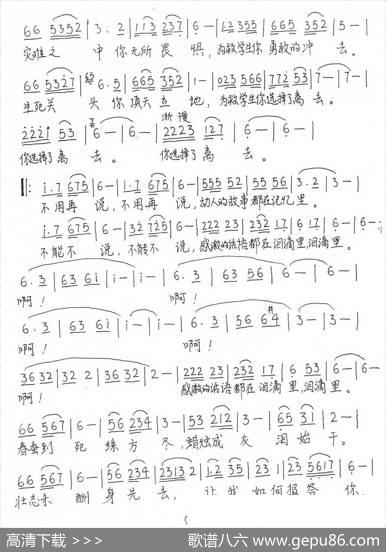 66 5352 | 3. 2 | 1 13 237 | 6 - | 12 355 | 665 352 | 5 - |
灾难之 中 你无所畏 惧, 为救学生你勇敢的冲 去。
66 5327 | 6. 5 | 665 352 | 1 - | 023 566 | 772 53 | 7 - | 7 - |
生死关 头 你顶天立 地, 为救学生你选择了离 去。
渐慢
2221 53 | 6 - | 6 - | 2223 127 | 6 - | 6 - |
你选择了离 去。 你选择了离 去。
‖: i. 7 675 | 6 - | i. 7 675 | 6 - | 555 52 | 55 56 | 3. 2 | 3 - |
不用再 说, 不用再 说, 动人的故事都在记忆 里。
i. 7 675 | 6 - | 32 725 | 6 - | 222 23 | 232 17 | 6 17 | 6 - | 6 - :
不能不 说, 不能不 说, 感激的话语都在泪滴里泪滴里。
6. 3 | 63 6i | i - | i - | 6. 3 | 63 56 | 6 - | 6 - |
啊! 啊!
6. 3 | 63 6i | i - | i - | 6. 3 | 56 6#4 | 3 - | 3 - |
啊! 啊!
36 32 | 32 2 | 36 32 | 2 - | 222 23 | 232 17 | 6 53 | 6 - | 6 -
啊! 感激的话语都在泪滴里泪滴里。
66 567 | 6 - | 56 234 | 3 - | 53 212 | 3 - | 65 31 | 2 - |
春蚕到 死 丝方 尽, 蜡烛成 灰 泪始 干。
66 567 | 6 - | 56 234 | 2313 2 | 12 35 | 23 1 | 23 5617 | 6 - |
壮志未 酬 身先 去, 让我 如何报答 你.
高清下载 >>>
歌谱八六 www.gepu86.com